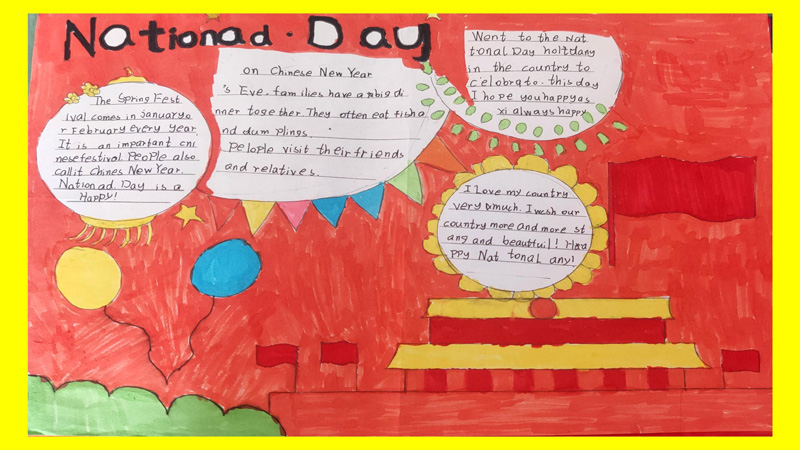 Nationad. Day
The Spring Fest
ival comes in January o
r February every year.
It is an important chi
nese festival. People also
call it Chines New Year.
Nationad Day is a
Happy!
on Chinese New Year
's Eve. families have a big di
nner together. They often eat fish a
nd dum plings.
Pelople visit their friends
and relatives.
Went to the Nat
tonal Day holtdany
in the country to
celobrato. this day
I hope you happy as
xi always happy
I Love my country
very much. I wish our
country more and more st
ang and beautful!
ppy Nat tonal any!